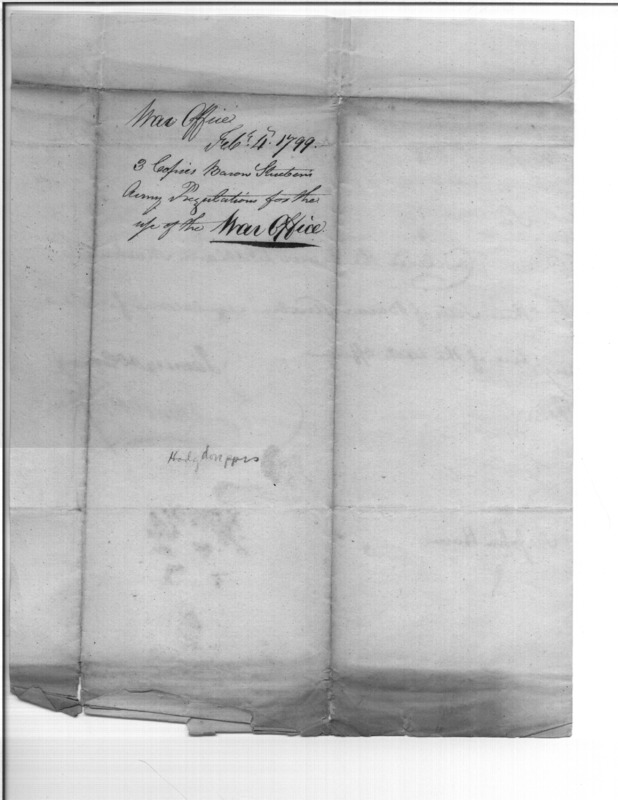 War Office
Feby. 4th. 1799.
3 Copies Baron Steubens
Army Regulations for the
use of the War Office